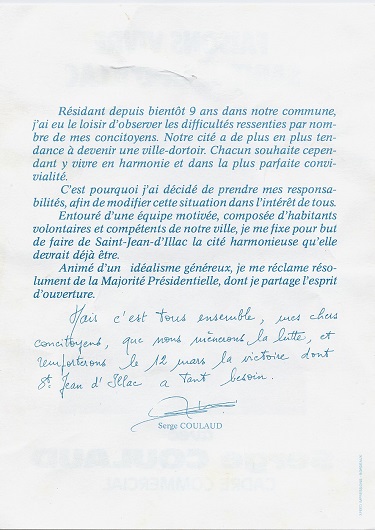 Résidant depuis bientôt 9 ans dans notre commune,
j'ai eu le loisir d'observer les difficultés ressenties par nom-
bre de mes concitoyens. Notre cité a de plus en plus ten-
dance à devenir une ville-dortoir. Chacun souhaite cepen-
dant y vivre en harmonie et dans la plus parfaite convi-
vialité.
C'est pourquoi j'ai décidé de prendre mes responsa-
bilités, afin de modifier cette situation dans l'intérêt de tous.
Entouré d'une équipe motivée, composée d'habitants
volontaires et compétents de notre ville, je me fixe pour but
de faire de Saint-Jean-d'Illac la cité harmonieuse qu'elle
devrait déjà être.
Animé d'un idéalisme généreux, je me réclame réso-
lument de la Majorité Présidentielle, dont je partage l'esprit
d'ouverture.
Mais c'est tous ensemble, mes chers
concitoyens, que nous mènerons la lutte, et
remporterons le 12 mars la victoire dont
St Jean d'Illac a tant besoin.
Serge COULAUD
Serge COULAUD
CADRE COMMERCIAL